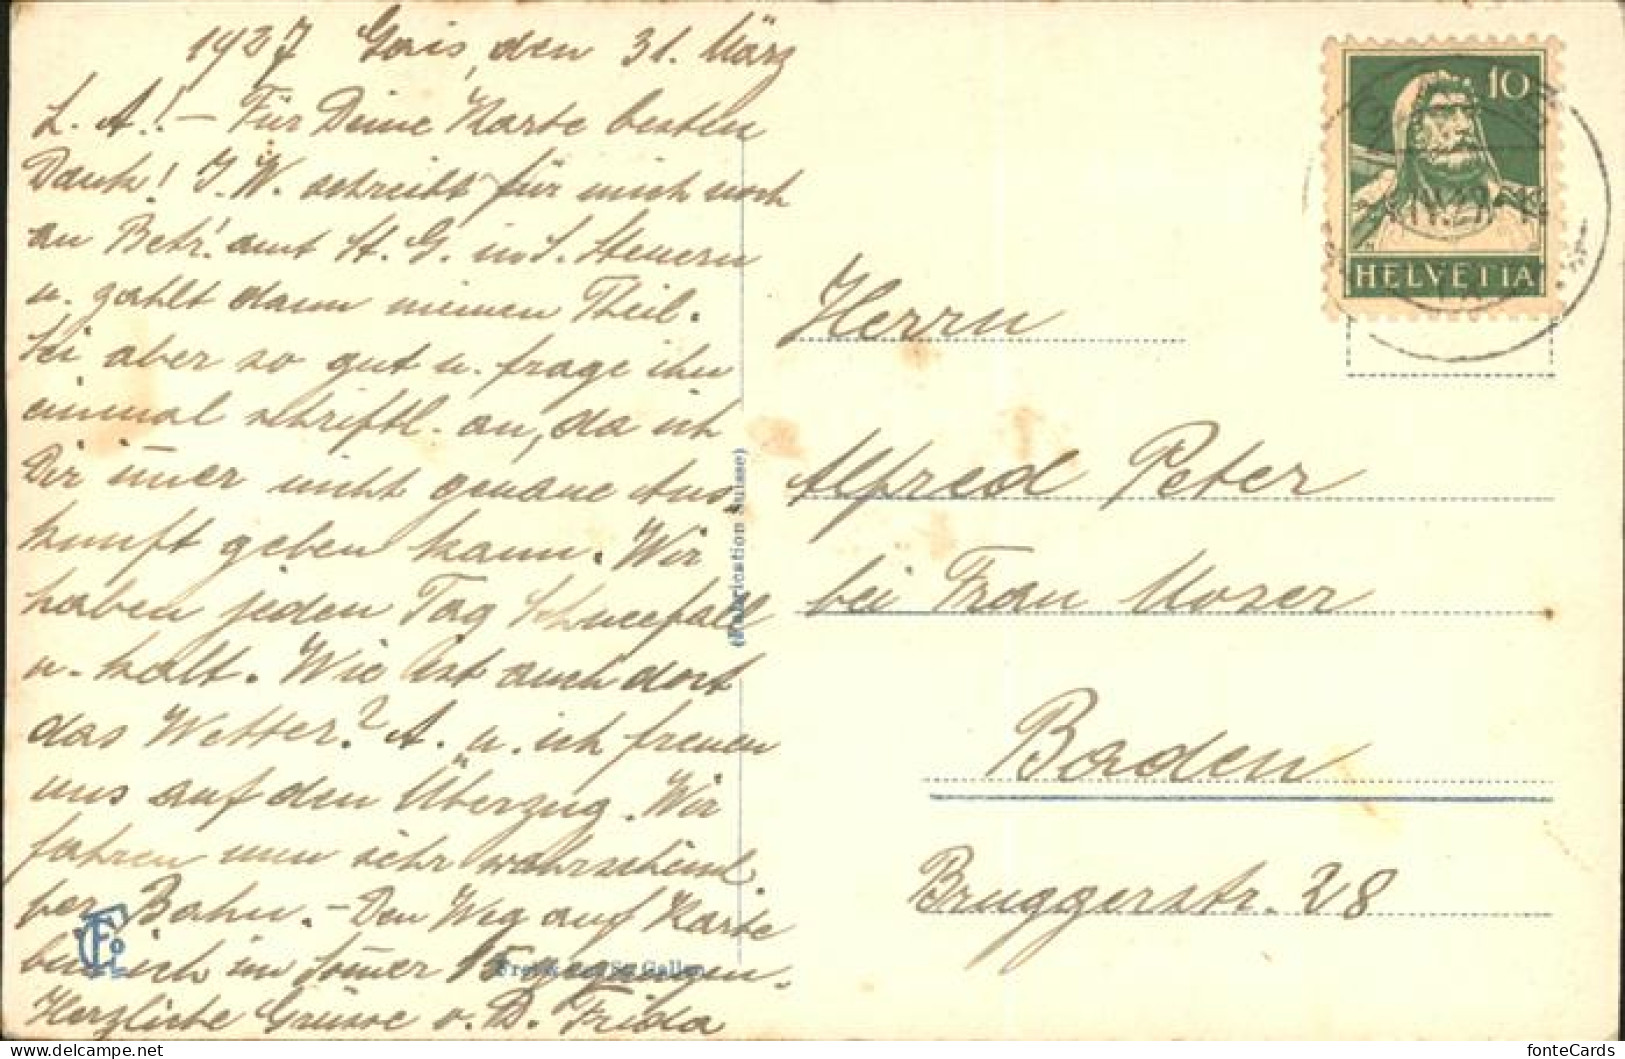 1927 Gais, den 31. März
L. A! – Für Deine Karte besten
Dank! J. W. schreibt für mich noch
an Betr! amt St. G. in S. Steuern
u. zahlt dann meinen Theil.
Sei aber so gut u. frage ihn
einmal schriftl. an, da ich
Dir im̄er nicht genaue Aus-
kunft geben kann. Wir
haben jeden Tag Schneefall
u. kalt. Wie ist auch dort
das Wetter? A. u. ich freuen
uns auf den Überzug. Wir
fahren nun sehr wahrscheinl.
per Bahn. – Den Weg auf Karte
bin ich im Som̄er 15 gegangen.
Herzliche Grüsse v. D. Frida
(Fabrication Suisse)
Frei & Co. St. Gallen
10
HELVETIA
Herrn
Alfred Peter
bei Frau Moser
Baden
Bruggerstr. 28
fonteCards